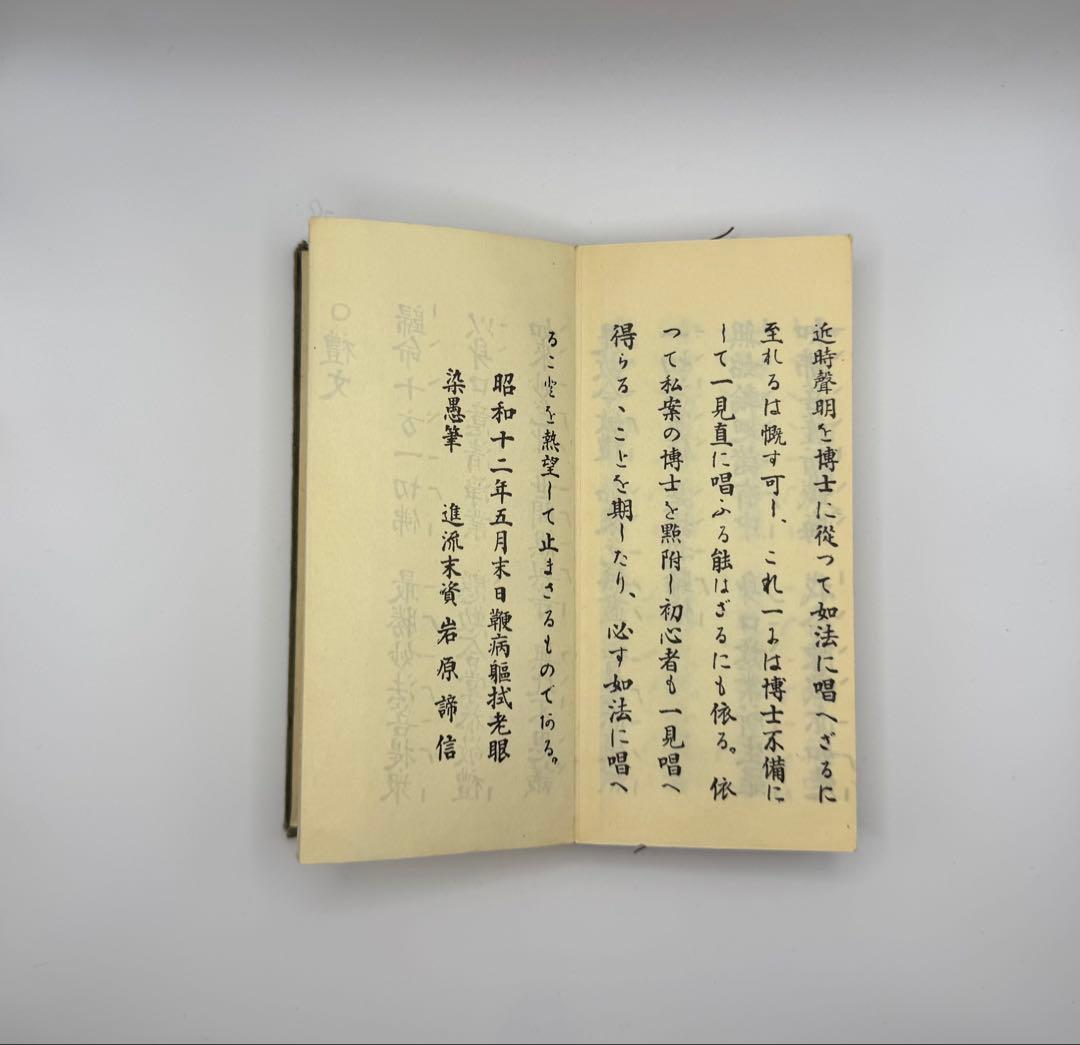 近時聲明を博士に從つて如法に唱へざるに
至れるは慨す可し、これ一には博士不備に
して一見直に唱ふる能はざるにも依る。依
つて私案の博士を㸃附し初心者も一見唱へ
得らるゝことを期したり、必す如法に唱へ
ることを熱望して止まさるものである。
昭和十二年五月末日鞭病軀拭老眼
染愚筆　進流末資岩原諦信
○禮文
歸命十方一切佛　最勝妙法菩提衆
以身口意清淨業　慇懃合掌恭敬禮